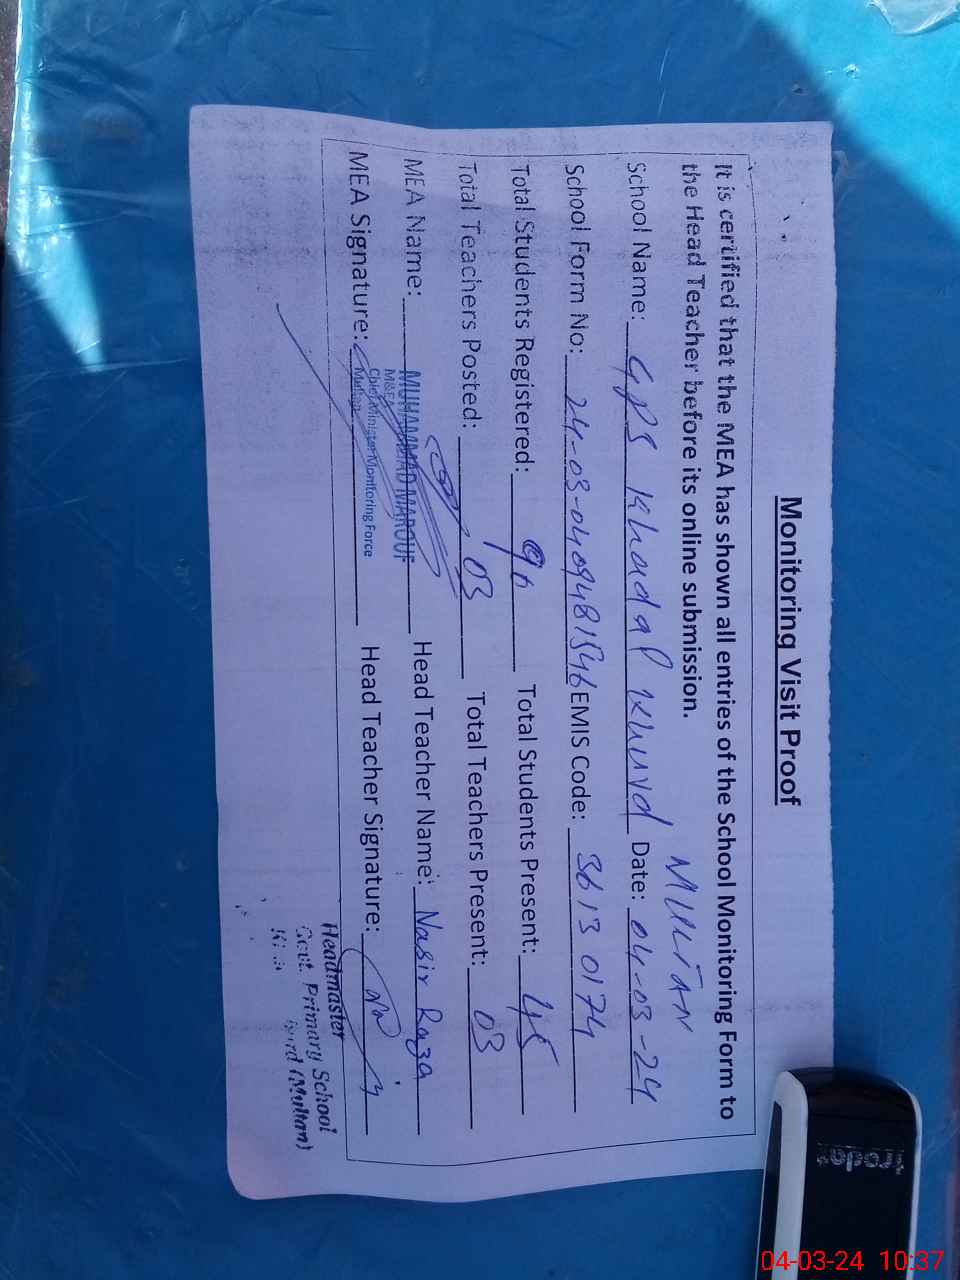 Monitoring Visit Proof
It is certified that the MEA has shown all entries of the School Monitoring Form to
the Head Teacher before its online submission.
MULTAN
School Name: GPS Khadal Khurd Date: 04-03-24
School Form No: 24-03-0409481546 EMIS Code: 36130174
Total Students Registered: 96 Total Students Present: 45
Total Teachers Posted: 03 Total Teachers Present: 03
MEA Name: MUHAMMAD MAROUF Head Teacher Name: Nasir Raza
MEA Signature: Head Teacher Signature:
Chief Minister Monitoring Force
Multan
Headmaster
Govt. Primary School
(Multan)
trodat
04-03-24 10:37